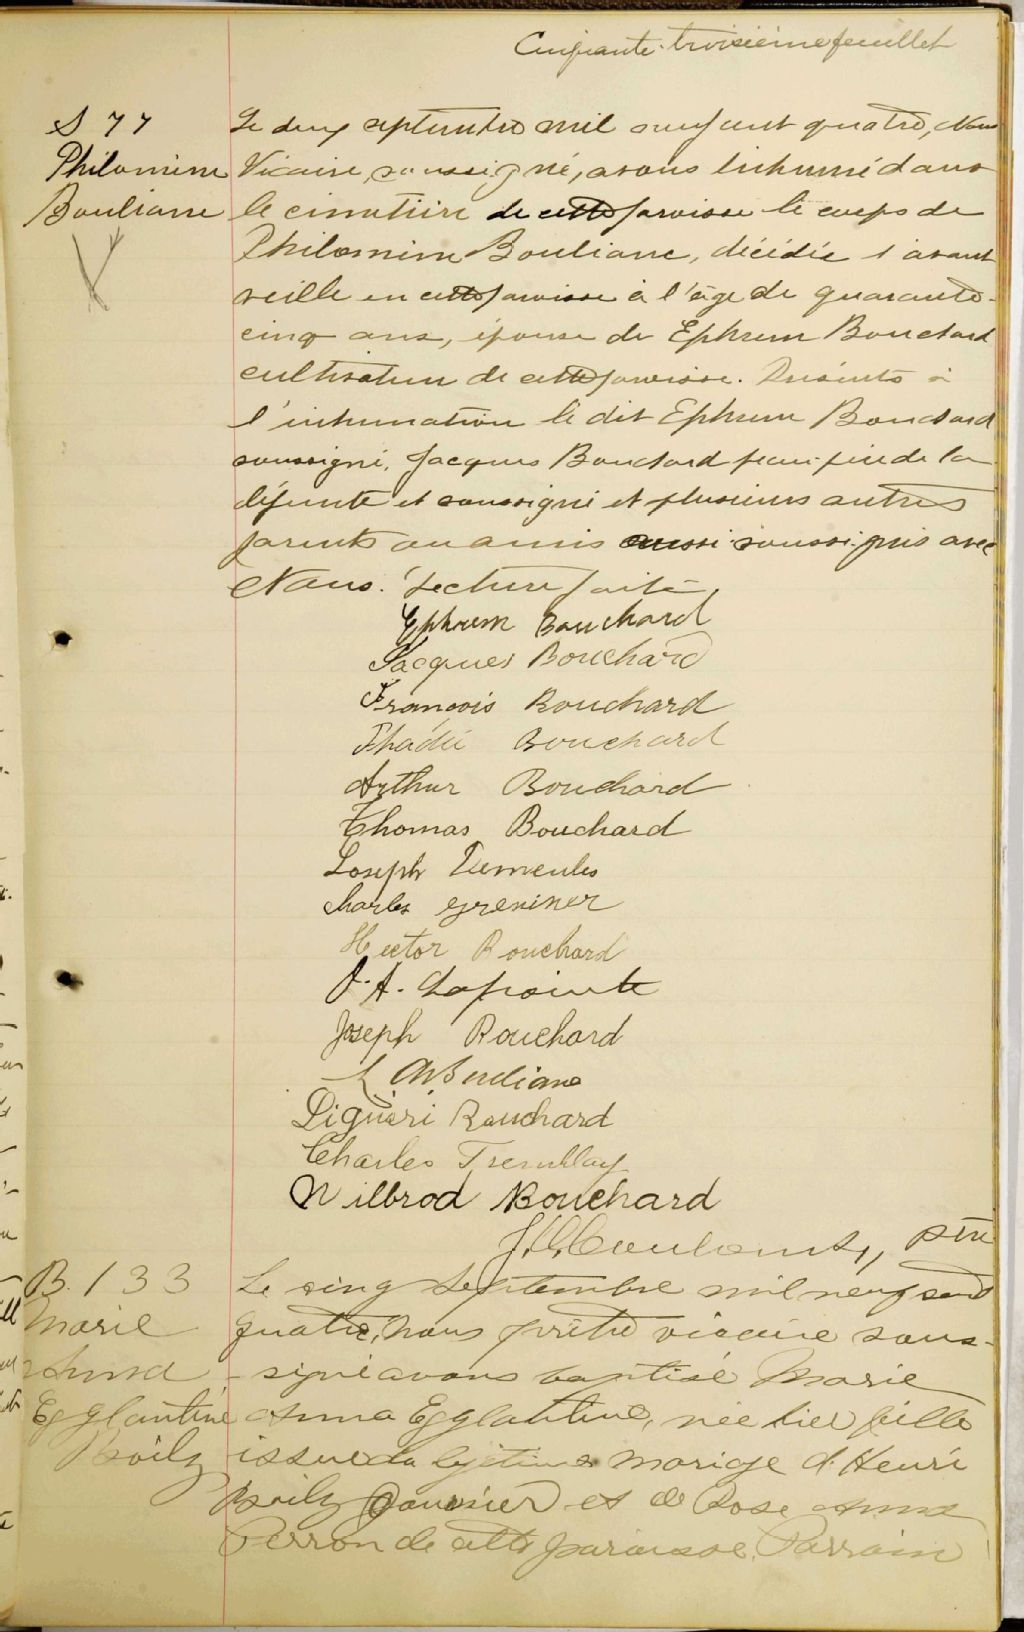 Cinquante-troisième feuillet
S 77
Philomène
Boulianne
Le deux septembre mil neuf cent quatre, Nous
Vicaire soussigné, avons inhumé dans
le cimetière de cette paroisse le corps de
Philomène Boulianne, décédée l'avant
veille en cette paroisse à l'âge de quarante-
cinq ans, épouse de Ephrem Bouchard
cultivateur de cette paroisse. Présents à
l'inhumation le dit Ephrem Bouchard
soussigné, Jacques Bouchard beau-frère de la
défunte et soussigné et plusieurs autres
parents ou amis aussi soussignés avec
Nous. Lecture faite
Ephrem Bouchard
Jacques Bouchard
François Bouchard
Thadée Bouchard
Arthur Bouchard
Thomas Bouchard
Joseph Demeules
Charles Greniner
Hector Bouchard
A. Lapointe
Joseph Bouchard
Liguori Bouchard
Charles Tremblay
Wilbrod Bouchard
ptre
B. 133
Marie
Anna
Egglantine
Boily
Le cinq Septembre mil neuf cent
quatre, nous prêtre vicaire sous-
signé avons baptisé Marie
Anna Egglantine, née hier fille
issue du légitime mariage d'Henri
Boily Journalier et de Rose Anna
Perron de cette paroisse. Parrain